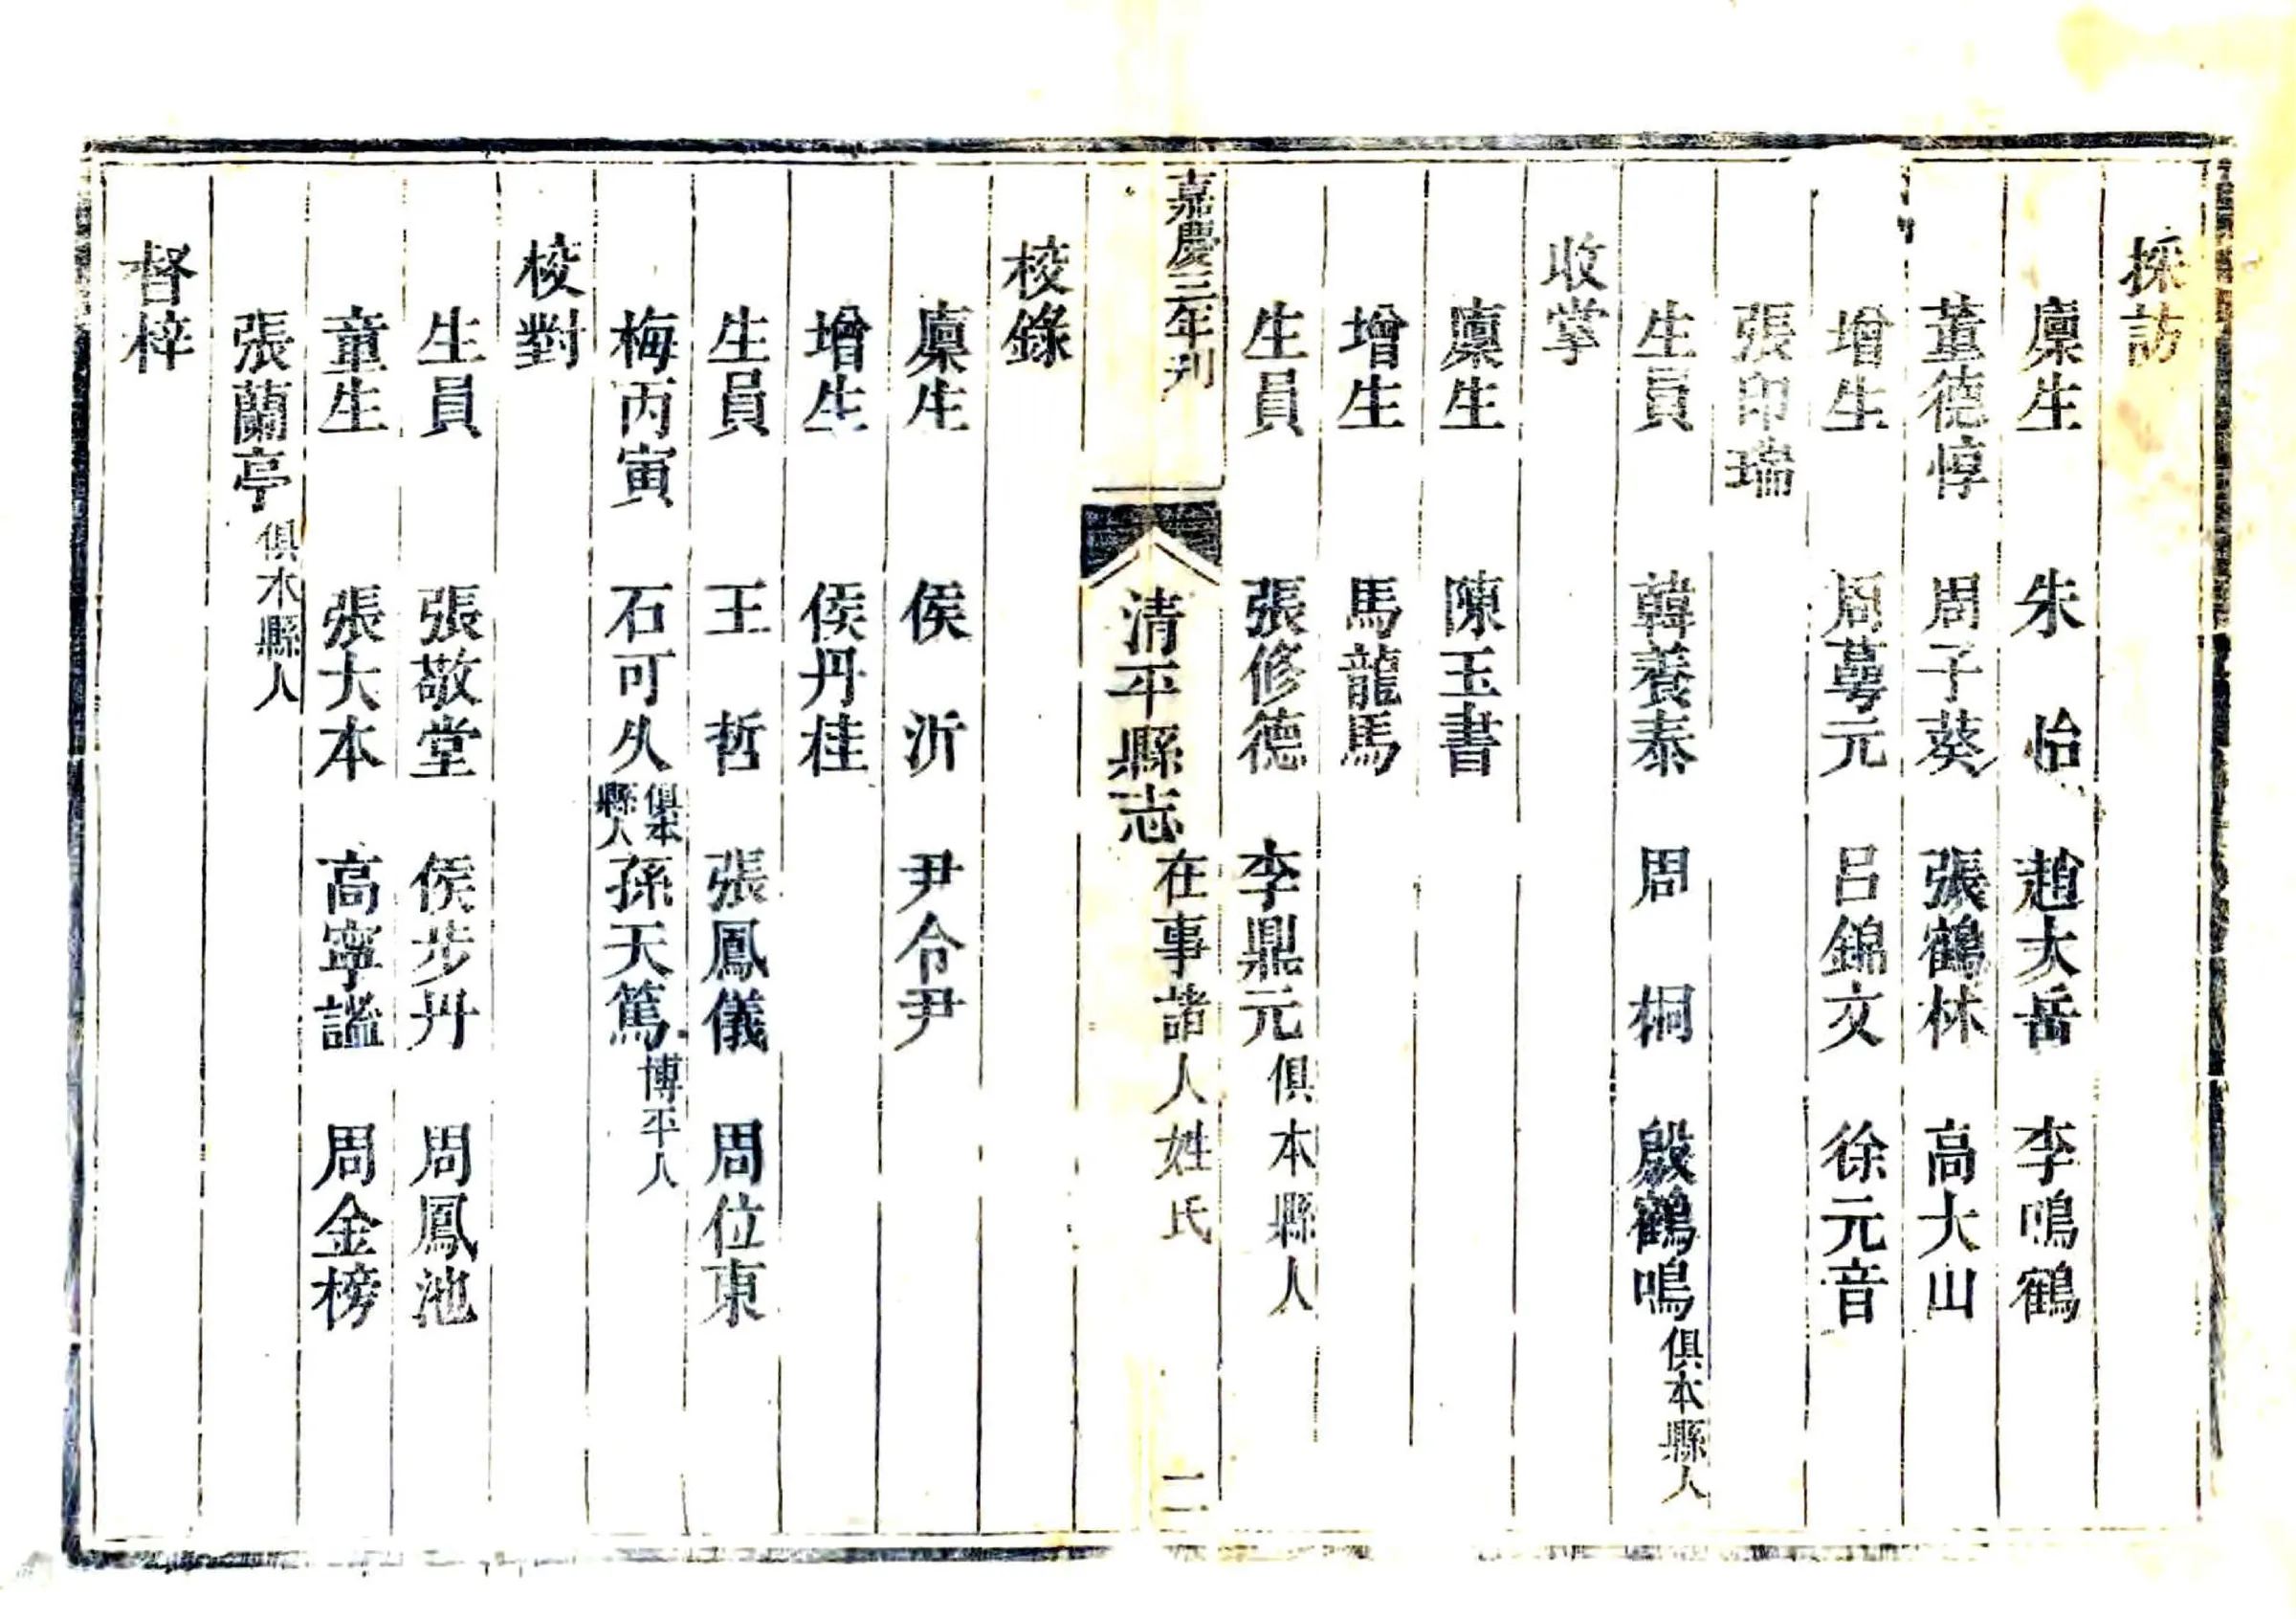 採訪
廩生　朱　怡　趙大岳　李鳴鶴
董德惇　周子葵　張鶴林　高大山
增生　周萼元　呂錦文　徐元音
張印瑞
生員　韓養泰　周　桐　殷鶴鳴俱本縣人
收掌
廩生　陳玉書
增生　馬龍馬
生員　張修德　李鼎元俱本縣人
嘉慶三年刊　清平縣志　在事諸人姓氏　二
校錄
廩生　侯　沂　尹令尹
增生　侯丹桂
生員　王　哲　張鳳儀　周位東
梅丙寅　石可久俱本縣人孫天篤博平人
校對
生員　張敬堂　侯步丹　周鳳池
童生　張大本　高寧謐　周金榜
張蘭亭俱本縣人
督梓